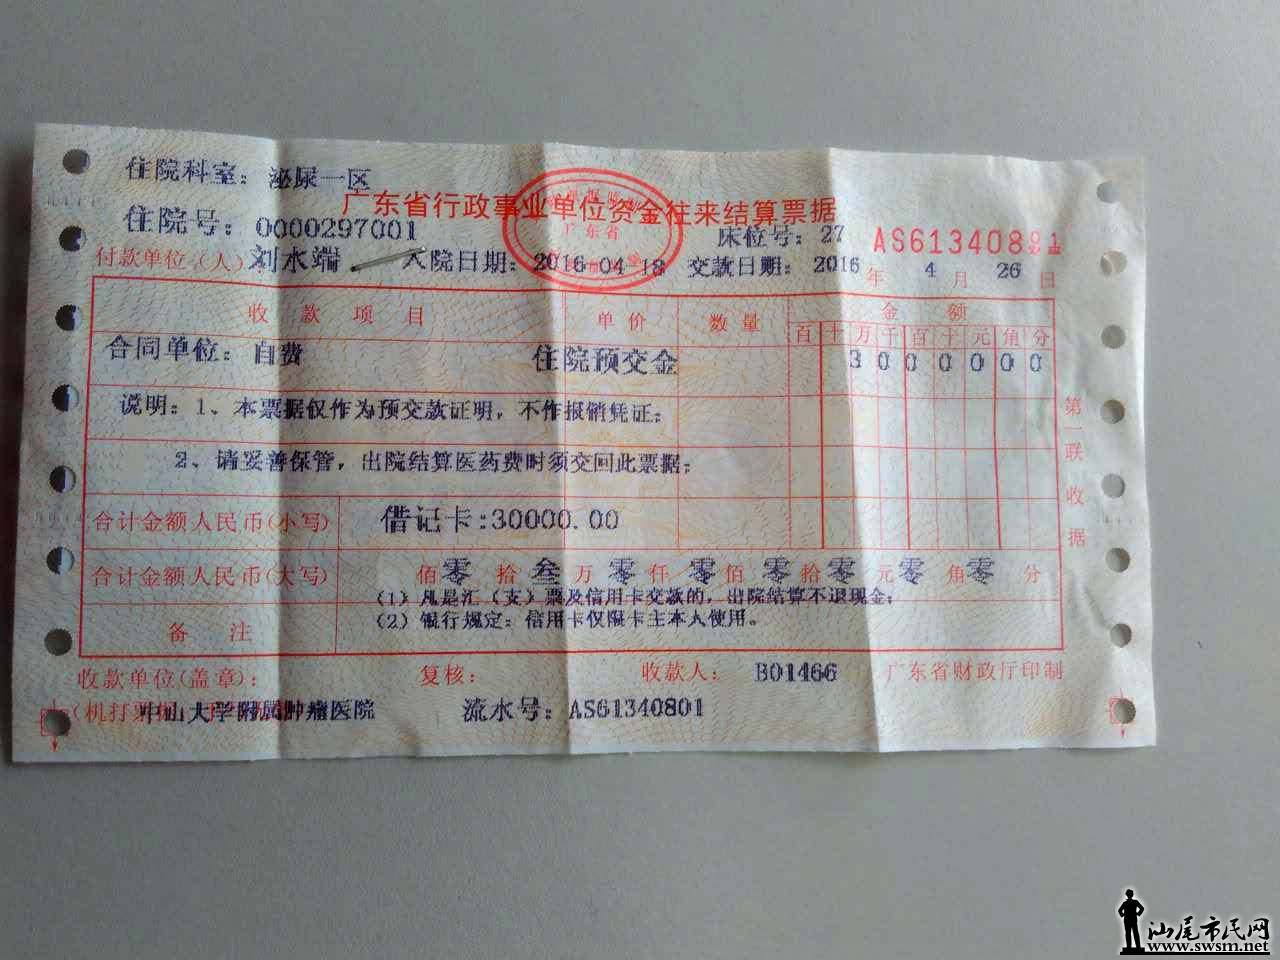 住院科室：泌尿一区
广东省行政事业单位资金往来结算票据
广东省
住院号：0000297001 床位号：27
付款单位(人) 刘水端 入院日期：2016-04-18 交款日期：2016年4月26日
收款项目 单价 数量 金额
百十万千百十元角分
合同单位：自费 住院预交金 30000000
说明：1、本票据仅作为预交款证明，不作报销凭证；
2、请妥善保管，出院结算医药费时须交回此票据；
合计金额人民币(小写) 借记卡:30000.00
合计金额人民币(大写) 佰零拾叁万零仟零佰零拾零元零角零分
(1) 凡是汇（支）票及信用卡交款的，出院结算不退现金；
备注 (2) 银行规定：信用卡仅限卡主本人使用。
第一联 收据
收款单位(盖章)： 复核： 收款人： B01466 广东省财政厅印制
中山大学附属肿瘤医院 流水号：AS61340801
汕尾市民网
www.swsm.net